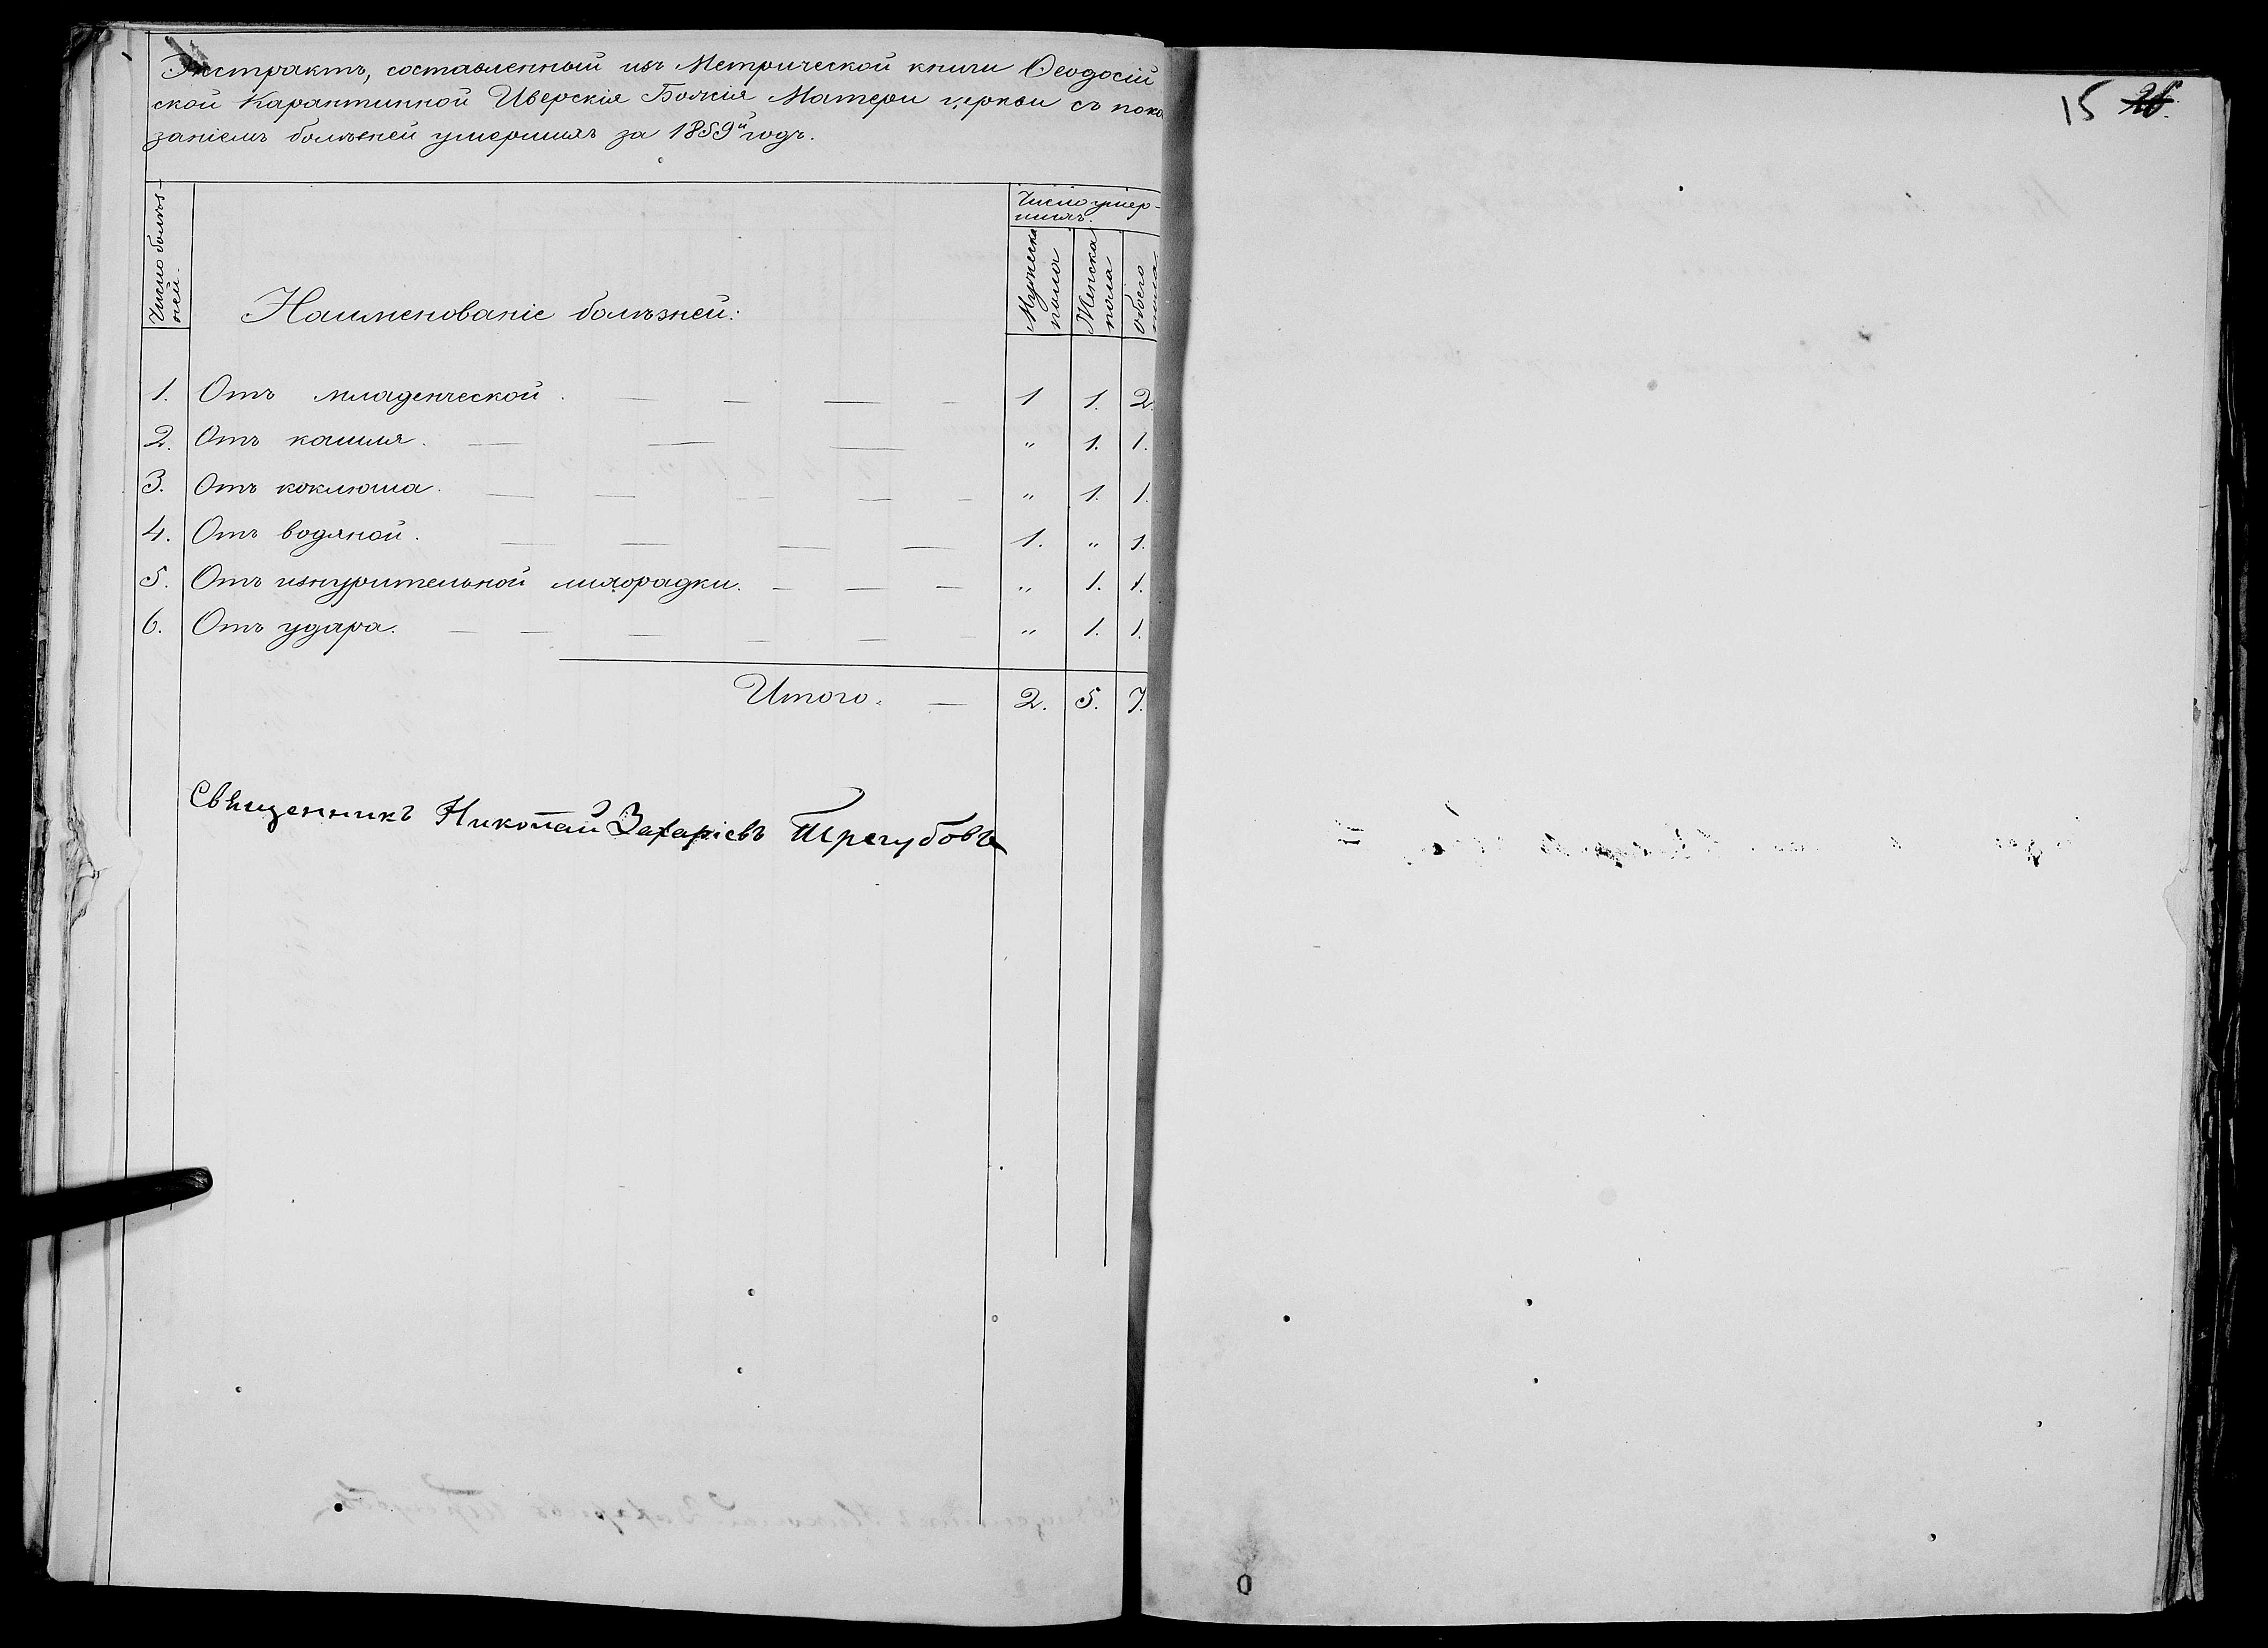 Экстрактъ, составленный изъ Метрической книги Ѳеодосій
ской Карантинной Иверскія Божія Матери церкви съ пока
заніемъ болѣзней умершихъ за 1859й годъ.
Число болѣз-
ней.
Наименованіе болѣзней:
Число умер-
шихъ.
Мужеска
пола
Женска
пола
обоего
пола
1. Отъ младенческой. — — — — 1 1. 2.
2. Отъ кашля. — — — " 1. 1.
3. Отъ коклюша. — — — — — " 1. 1.
4. Отъ водяной. — — — — 1. " 1.
5. Отъ изнурительной лихорадки. — — — " 1. 1.
6. Отъ удара. — — — — — — " 1. 1.
Итого. — 2. 5. 7.
Священникъ Николай Захаріевъ Трегубовъ
15 26.